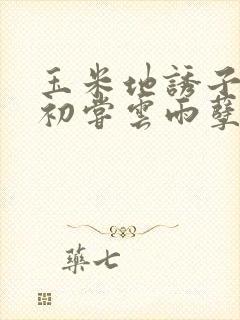 玉米地誘子
初嘗雲雨孽
藥七